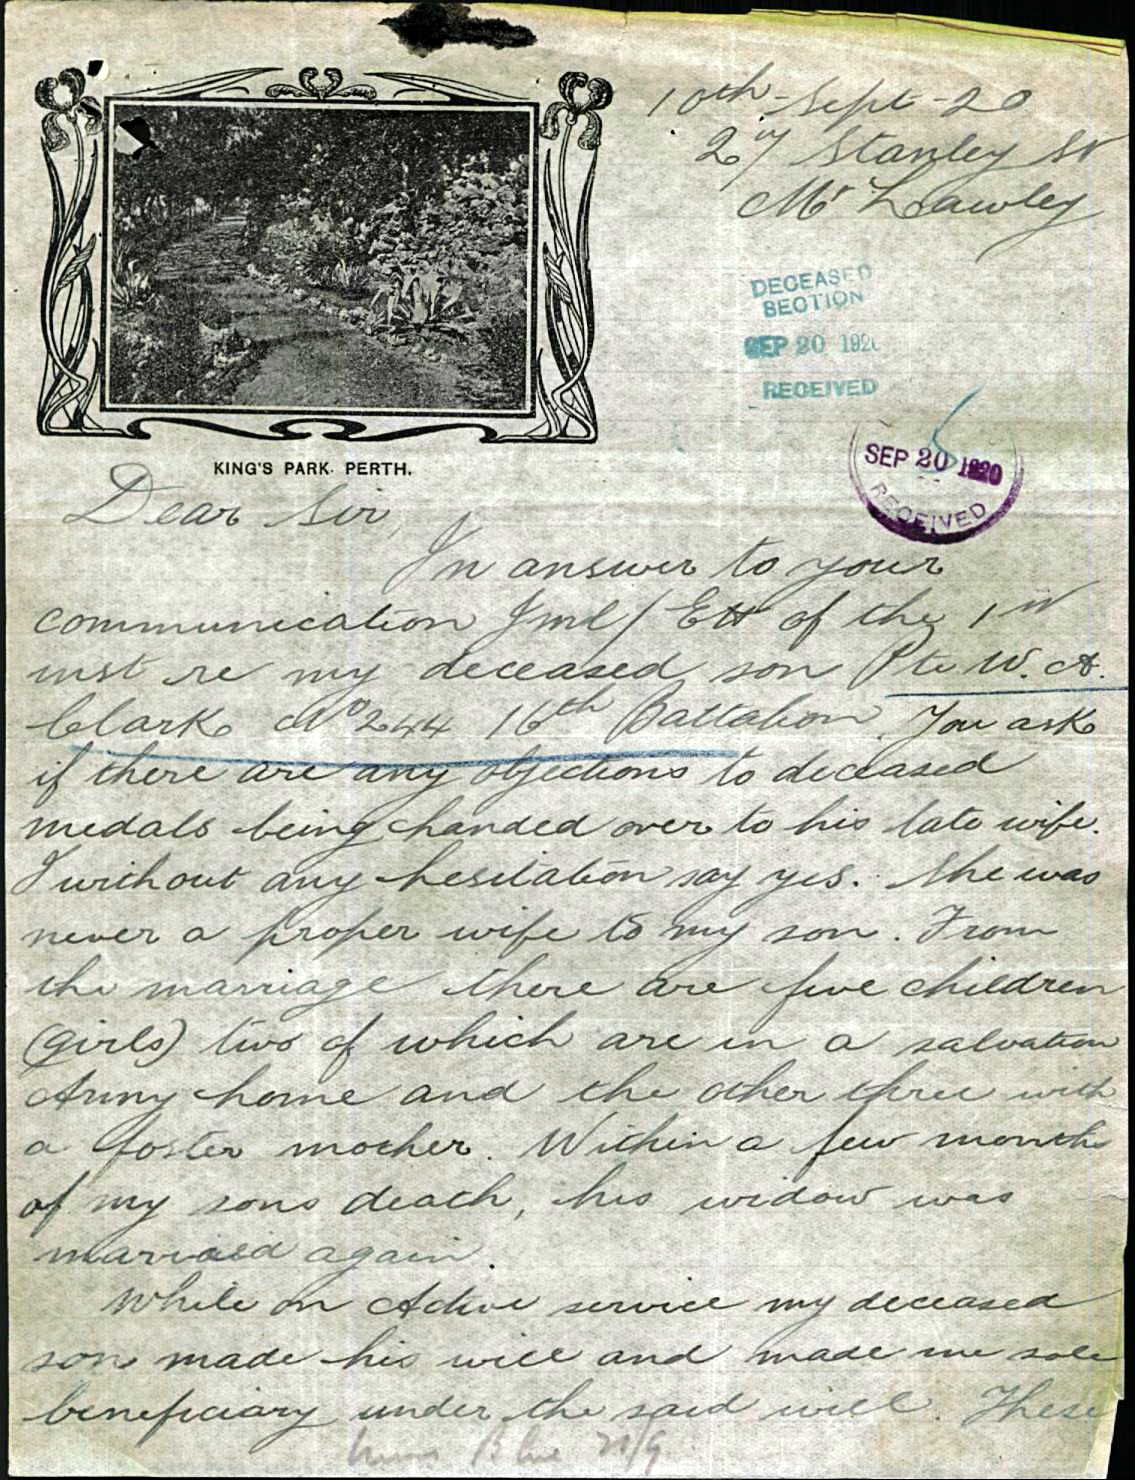 10th Sept - 20
27 Stanley St
Mt Lawley
DECEASED
SECTION
SEP 20 1920
RECEIVED
SEP 20 1920
RECEIVED
KING'S PARK. PERTH.
Dear Sir,
In answer to your
communication Jml/EH of the 1st
inst re my deceased son Pte W. A.
Clark No 244 16th Battalion. You ask
if there are any objections to deceased
medals being handed over to his late wife.
I without any hesitation say yes. She was
never a proper wife to my son. From
the marriage there are five children
(girls) two of which are in a salvation
Army home and the other three with
a foster mother. Within a few months
of my sons death, his widow was
married again.
While on Active service my deceased
son made his will and made me sole
beneficiary under the said will. These